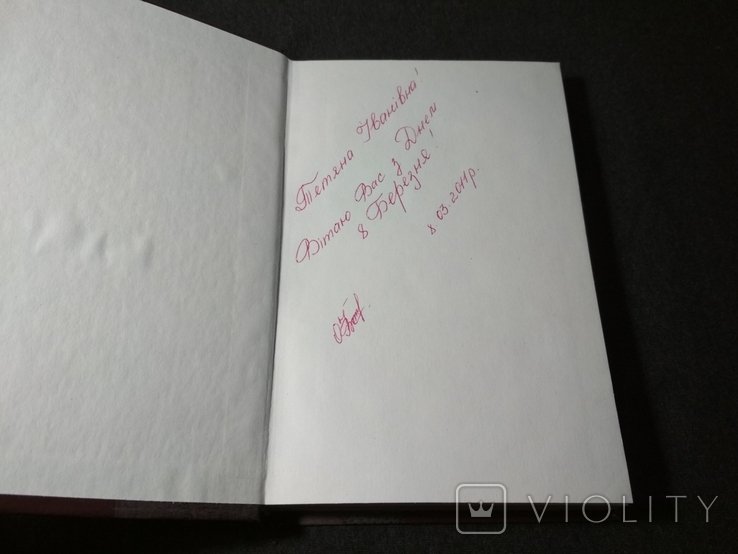 Тетяна Іванівна!
Вітаю Вас з Днем
8 Березня!
8 03.2011р.
VIOLITY